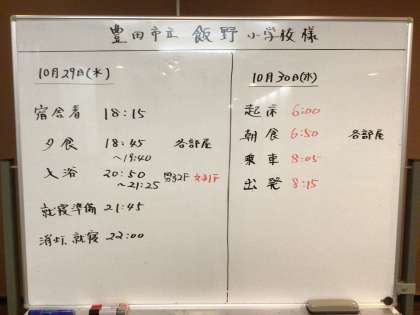 豊田市立 飯野小学校様
10月29日(木)
宿舎着 18:15
夕食 18:45 各部屋
～19:40
入浴 20:50 男子2F 女子1F
～21:25
就寝準備 21:45
消灯、就寝 22:00
10月30日(水)
起床 6:00
朝食 6:50 各部屋
乗車 8:05
出発 8:15